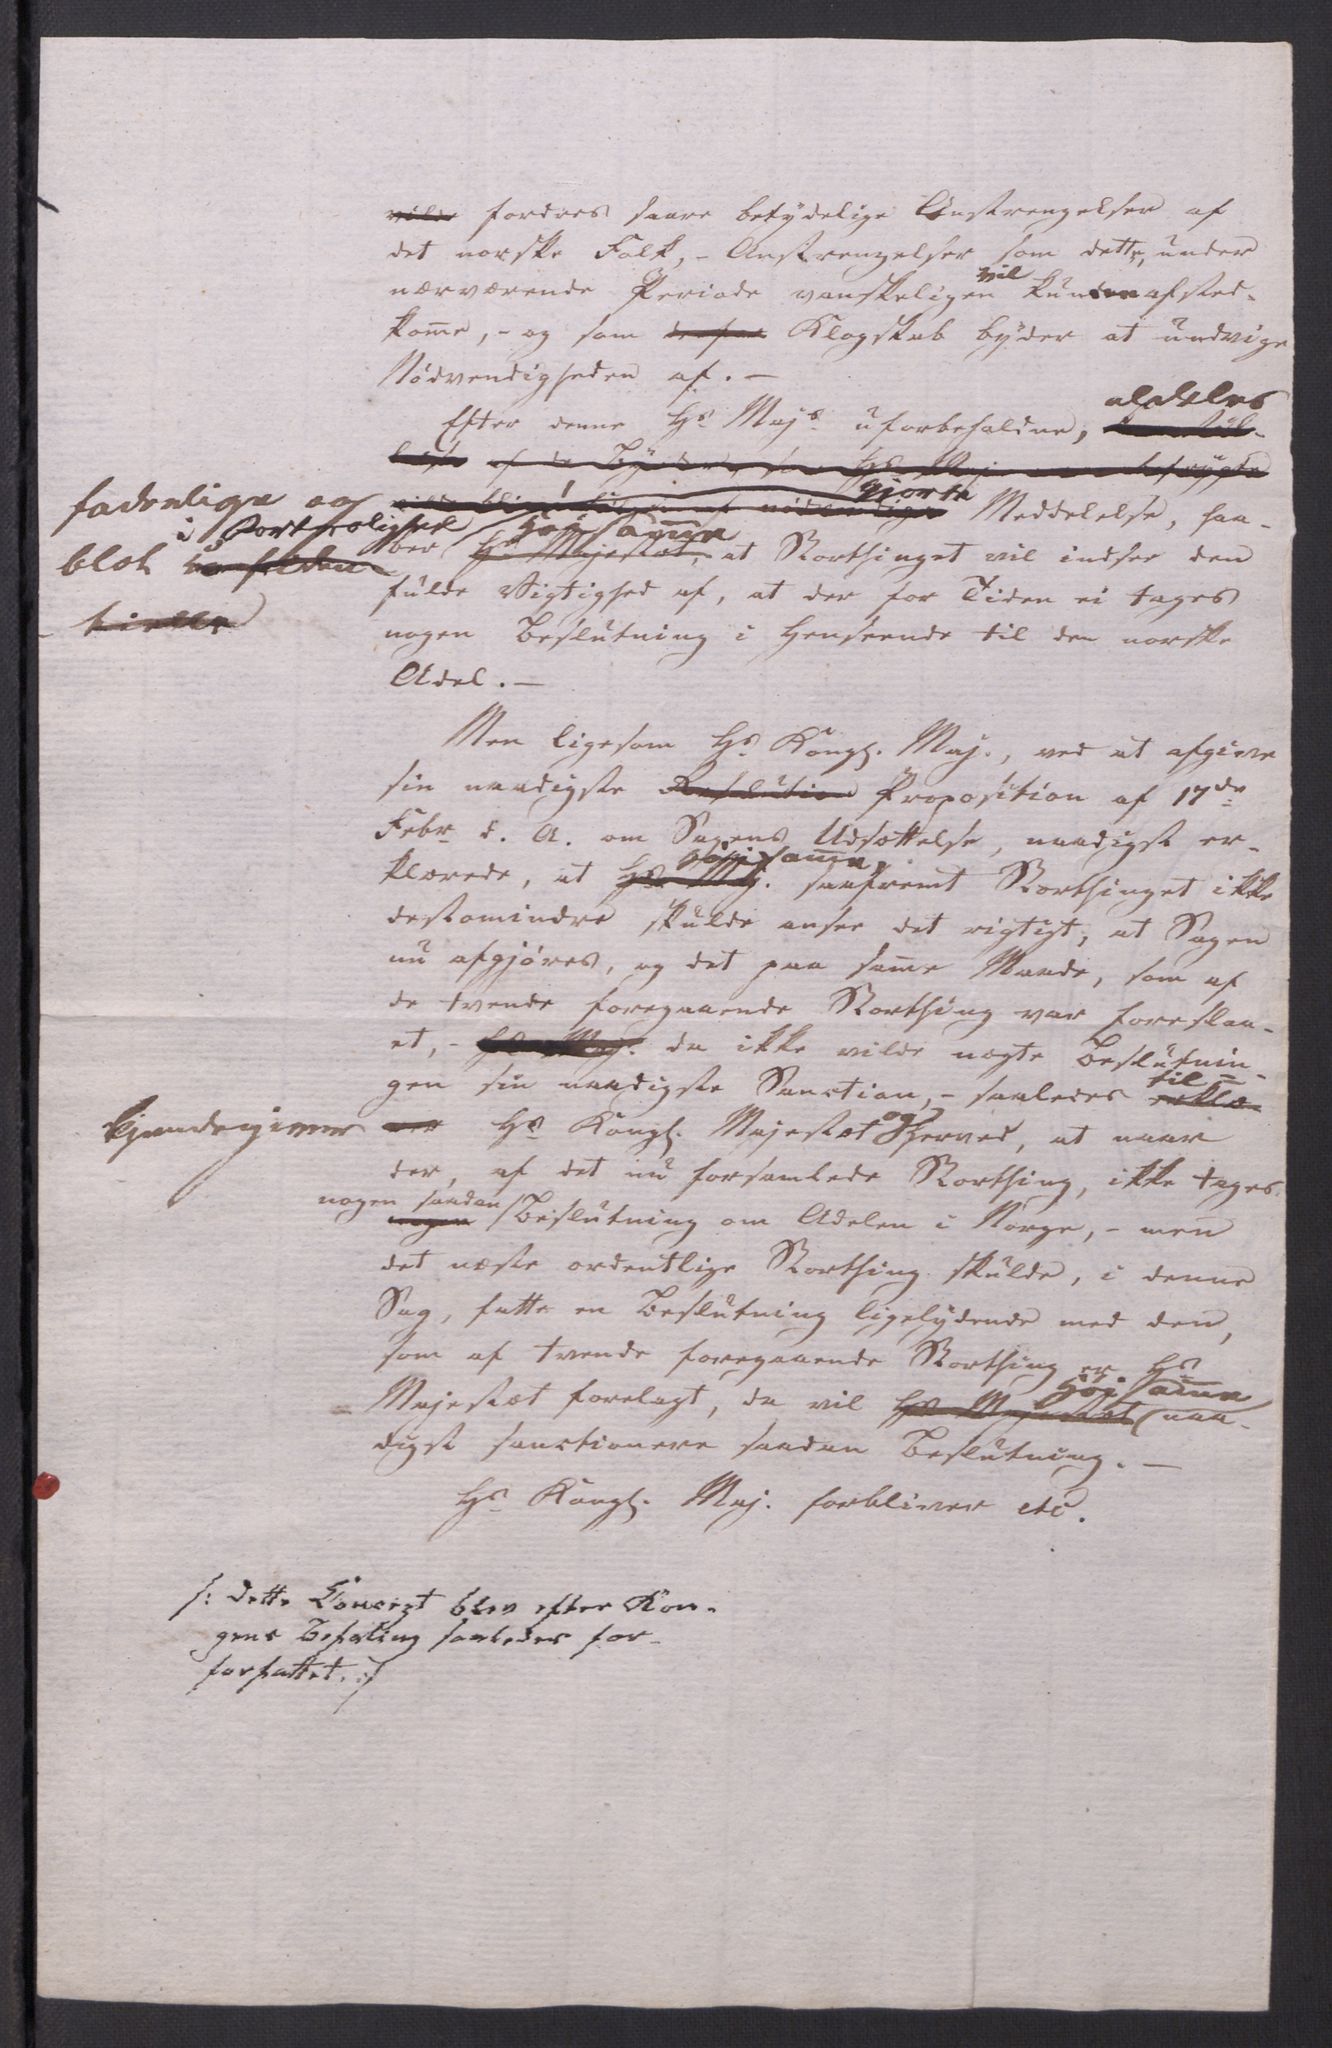 vilde fordres saare betydelige Anstrengelser af
det norske Folk, - Anstrengelser som dette, under
nærværende Periode vanskeligen vil kunne afsted-
komme, - og som Klogskab byder at undvige
Nödvendigheden af. -
Efter denne Hs Majs uforbeholdne, aldeles
faderlige og
i Fortrolighed
blot confiden-
tielle
gjorte Meddelelse, haa-
ber Hs Majestæt, Höjsamme at Storthinget vil indsee den
fulde Vigtighed af, at der for Tiden ei tages
nogen Beslutning i Henseende til den norske
Adel. -
Men ligesom Hs Kongl. Maj., ved at afgive
sin naadigste Resolution Proposition af 17de
Febr. d. A. om Sagens Udsættelse, naadigst er-
klærede, at Hs Maj. Höjsamme, saafremt Storthinget ikke
destomindre skulde ansee det rigtigt, at Sagen
nu afgjöres, og det paa samme Maade, som af
de tvende foregaaende Storthing var foreslaa-
et, - Hs Maj. da ikke vilde nægte Beslutnin-
gen sin naadigste Sanction, - saaledes til= erklæ-
kjendegiver rer Hs Kongl. Majestæt og herved, at naar
der, af det nu forsamlede Storthing, ikke tages
nogen saadan nogen Beslutning om Adelen i Norge, - men
det næste ordentlige Storthing skulde, i denne
Sag, fatte en Beslutning ligelydende med den,
som af tvende foregaaende Storthing er Hs
Majestæt forelagt, da vil Hs Majestæt Höjsamme naa-
digst sanctionere saadan Beslutning. -
Hs Kongl. Maj. forbliver etc.
/: Dette Concept blev efter Kon-
gens Befaling saaledes for-
forfattet. :/